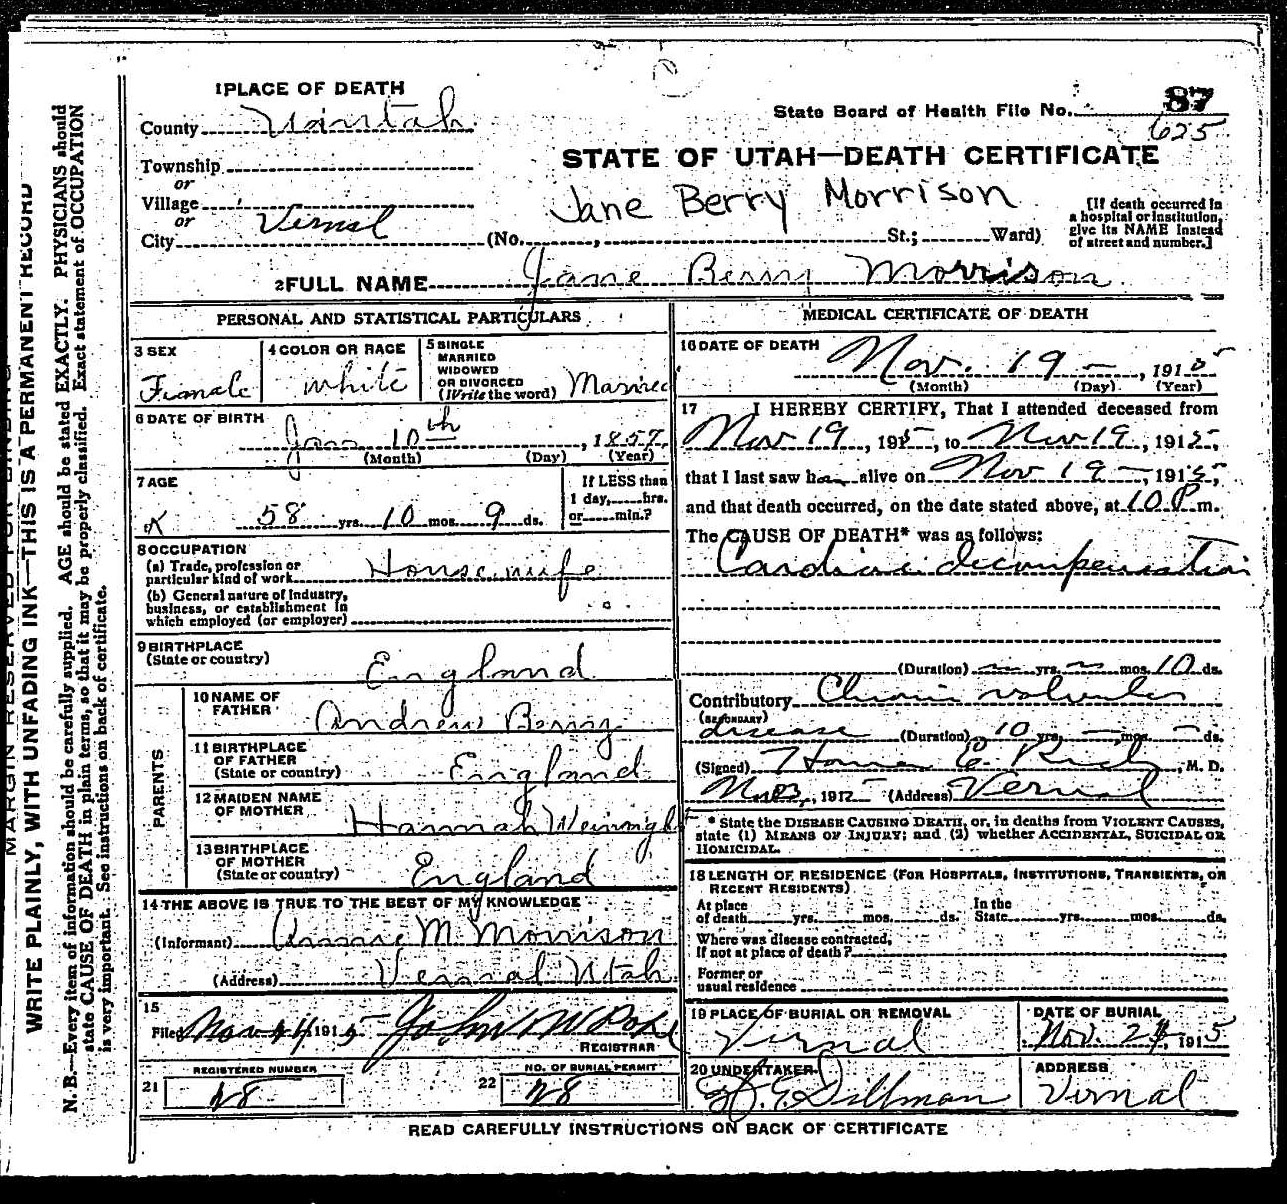 1 PLACE OF DEATH
County Uintah
State Board of Health File No. 87
625
Township
or
Village
or
City Vernal (No. , St.; Ward)
STATE OF UTAH—DEATH CERTIFICATE
Jane Berry Morrison
[If death occurred in
a hospital or institution,
give its NAME instead
of street and number.]
2 FULL NAME Jane Berry Morrison
PERSONAL AND STATISTICAL PARTICULARS
3 SEX
Female
4 COLOR OR RACE
white
5 SINGLE
MARRIED
WIDOWED
OR DIVORCED
(Write the word) Married
6 DATE OF BIRTH
Jan 10th, 1857
(Month) (Day) (Year)
7 AGE
58 yrs. 10 mos. 9 ds.
If LESS than
1 day, hrs.
or min.?
8 OCCUPATION
(a) Trade, profession or
particular kind of work Housewife
(b) General nature of Industry,
business, or establishment in
which employed (or employer)
9 BIRTHPLACE
(State or country)
England
PARENTS
10 NAME OF
FATHER
Andrew Berry
11 BIRTHPLACE
OF FATHER
(State or country) England
12 MAIDEN NAME
OF MOTHER
Hannah
13 BIRTHPLACE
OF MOTHER
(State or country) England
14 THE ABOVE IS TRUE TO THE BEST OF MY KNOWLEDGE
(Informant) M. Morrison
(Address) Vernal Utah
15
Filed Nov 24 1915 John
REGISTRAR
REGISTERED NUMBER
21 48
NO. OF BURIAL PERMIT
22 48
MEDICAL CERTIFICATE OF DEATH
16 DATE OF DEATH
Nov. 19 —, 1915
(Month) (Day) (Year)
17 I HEREBY CERTIFY, That I attended deceased from
Nov 19, 1915, to Nov 19, 1915,
that I last saw her alive on Nov 19 —, 1915,
and that death occurred, on the date stated above, at 10 P m.
The CAUSE OF DEATH* was as follows:
Cardiac decompensation
(Duration) — yrs. — mos. 10 ds.
Contributory Chronic valvular
(SECONDARY)
disease (Duration) 10 yrs. — mos. — ds.
(Signed) Homer E. Rich, M. D.
1915 (Address) Vernal
* State the DISEASE CAUSING DEATH, or, in deaths from VIOLENT CAUSES,
state (1) MEANS OF INJURY; and (2) whether ACCIDENTAL, SUICIDAL OR
HOMICIDAL.
18 LENGTH OF RESIDENCE (FOR HOSPITALS, INSTITUTIONS, TRANSIENTS, OR
RECENT RESIDENTS)
At place In the
of death yrs. mos. ds. State yrs. mos. ds.
Where was disease contracted,
if not at place of death?
Former or
usual residence
19 PLACE OF BURIAL OR REMOVAL
Vernal
DATE OF BURIAL
Nov. 24, 1915
20 UNDERTAKER
Dillman
ADDRESS
Vernal
READ CAREFULLY INSTRUCTIONS ON BACK OF CERTIFICATE
MARGIN RESERVED FOR BINDING
WRITE PLAINLY, WITH UNFADING INK—THIS IS A PERMANENT RECORD
N. B.—Every item of information should be carefully supplied. AGE should be stated EXACTLY. PHYSICIANS should
state CAUSE OF DEATH in plain terms, so that it may be properly classified. Exact statement of OCCUPATION
is very important. See instructions on back of certificate.